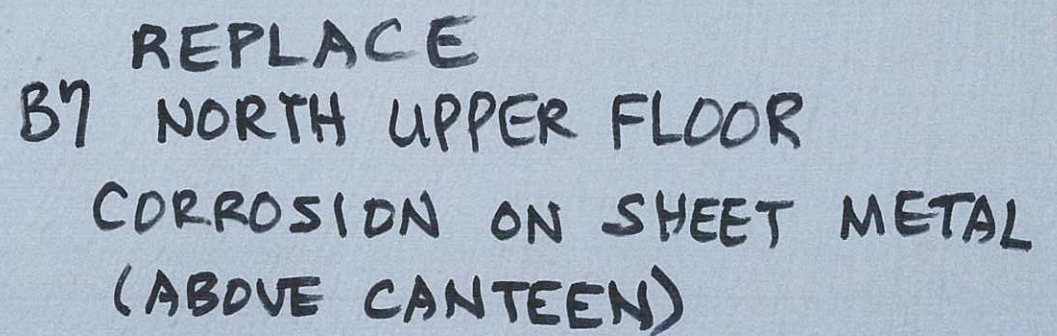 REPLACE
B7 NORTH UPPER FLOOR
CORROSION ON SHEET METAL
(ABOVE CANTEEN)